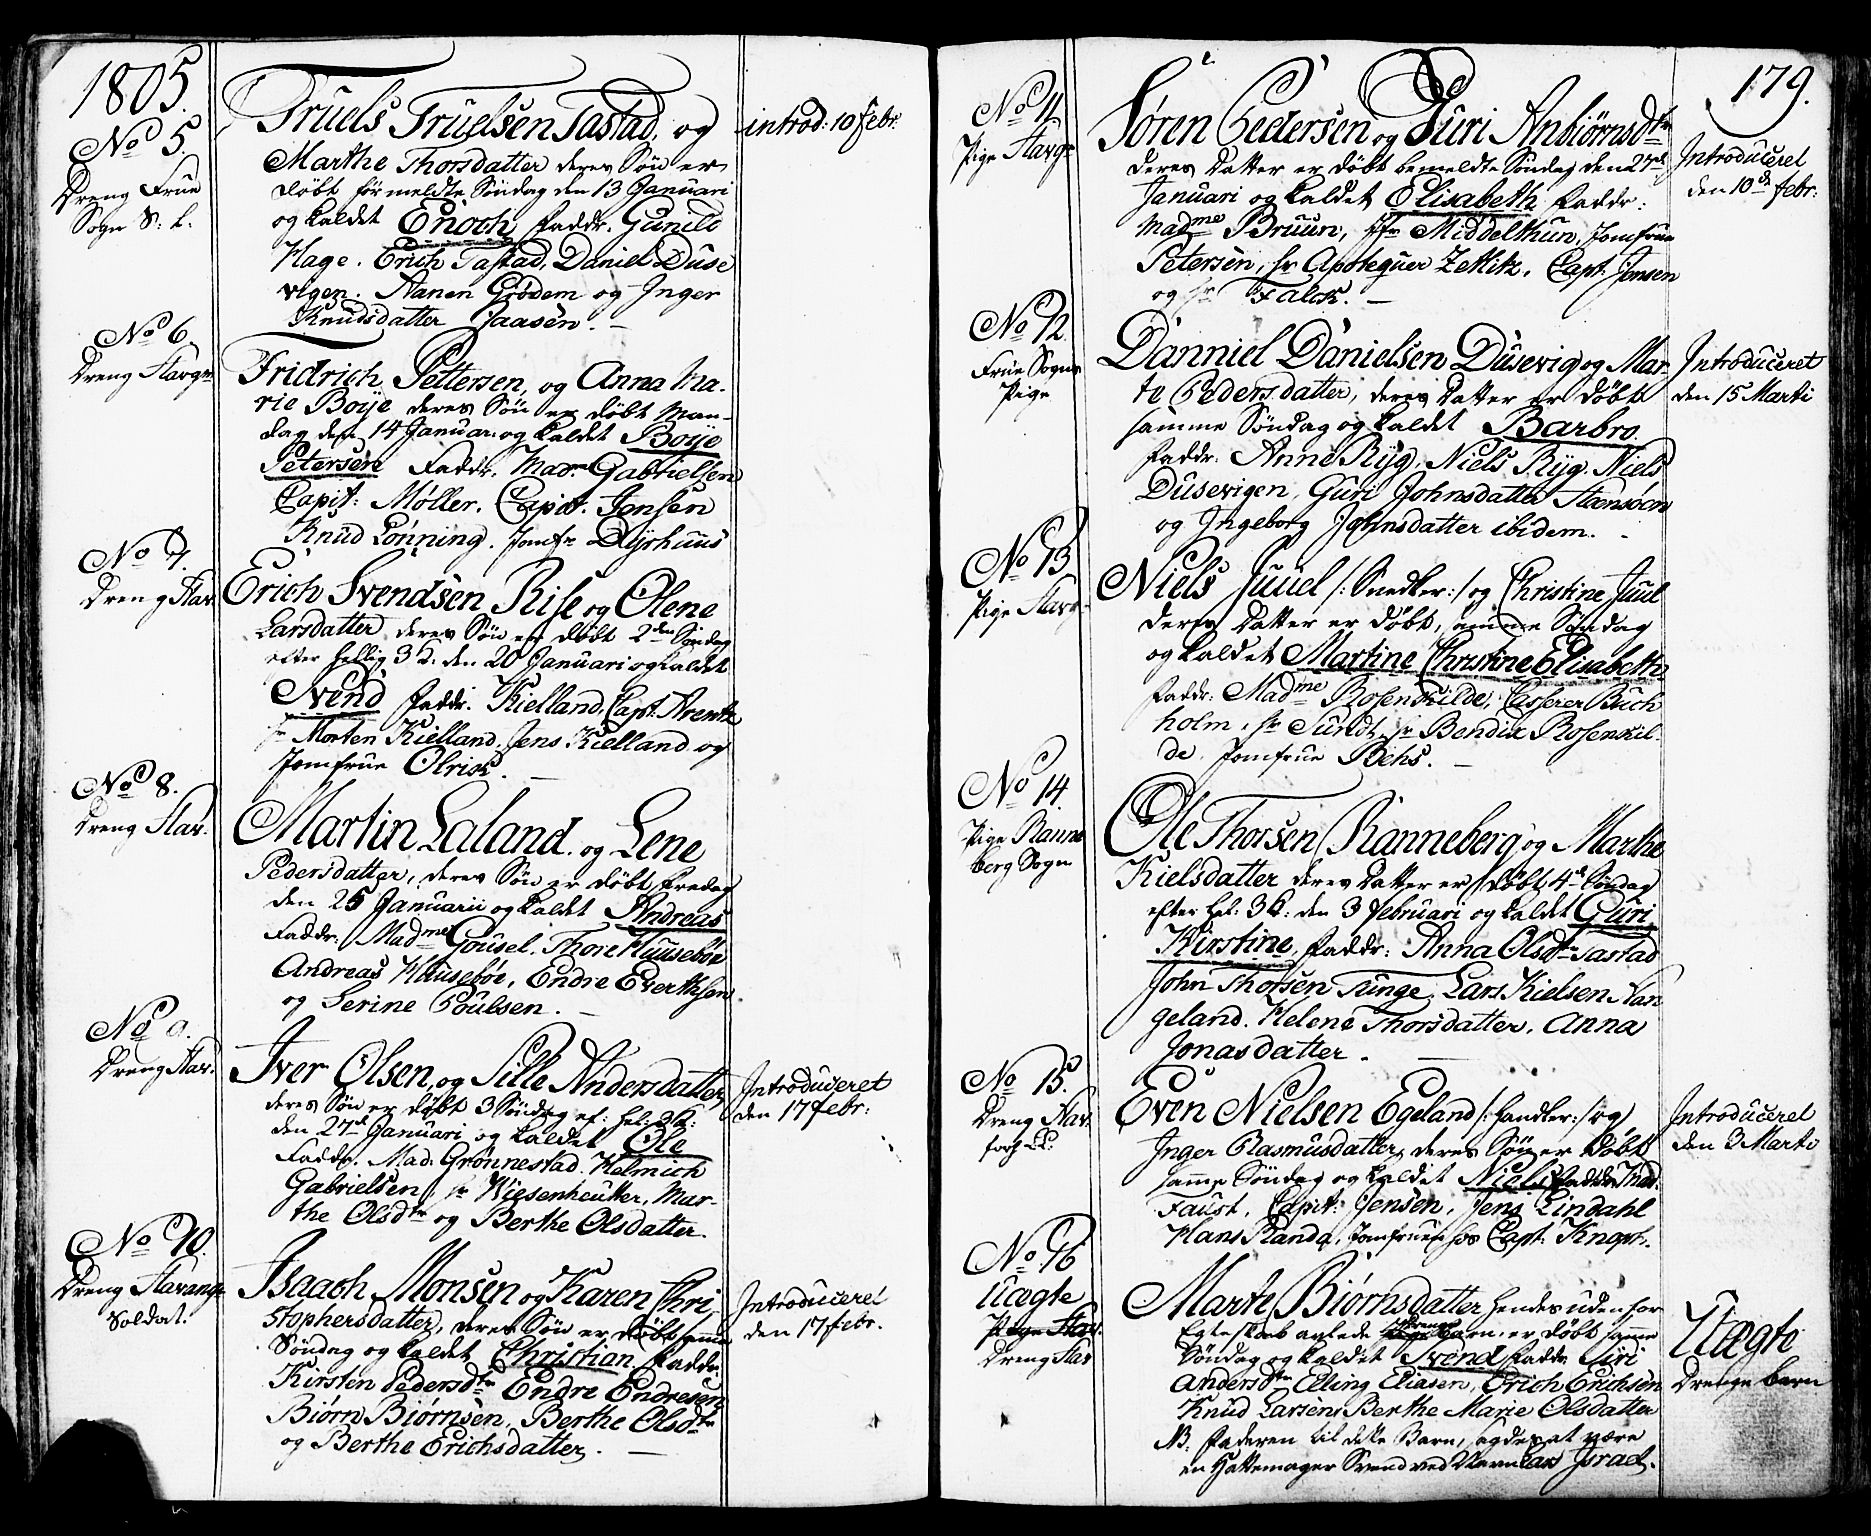 1805.
No 5.
Dreng Frue
Sogn S: L.
Truels Truelsen Tastad, og
Marthe Thorsdatter deres Søn er
døbt förmeldte Söndag den 13 Januari
og kaldet Enoch, Faddr. Gunild
Hage. Erich Tastad, Daniel Duse
vigen. Nanen Grödem og Inger
Knudsdatter Jaasen.
introd: 10 Febr.
No 6.
Dreng Stavgr
Fridrich Pettersen, og Anna Ma-
rie Boÿe deres Søn er döbt Man-
dag den 14 Januar: og kaldet Boÿe
Petersen Faddr. Mad. Gabrielsen
Capit: Møller. Capit. Jensen
Knud Lönning. Jomfr Dÿrhuus
No 7.
Dreng Stav.
Erich Svendsen Rise og Olene
Larsdatter deres Søn er döbt 2den Söndag
efter hellig 3 K: den 20 Januari og kaldet
Svend Faddr. Kielland, Capt. Arentz
hr Morten Kielland. Jens Kielland og
Jomfrue Olrich.
No 8.
Dreng Stav.
Martin Laland. og Lene
Pedersdatter, deres Søn er döbt Fredag
den 25 Januarii og kaldet Andreas
Faddr: Madme Gousel. Thore Huusebøe
Andreas Huusebøe, Endre Everthsen
og Serine Poulsen.
No 9.
Dreng Stav.
Iver Olsen, og Sille Andersdatter,
deres Søn er döbt 3 Söndag ef: hel: 3 K:
den 27de Januari og kaldet Ole
Faddr. Mad: Grönnestad. Helmich
Gabrielsen, hr Wiesenheutter, Mar-
the Olsdtr og Berthe Olsdatter.
Introduceret
den 17 febr:
No 10.
Dreng Stavang
Soldat.
Isaach Monsen og Karen Chri
stophersdatter, deres Søn er döbt samme
Söndag og kaldet Christian. Faddr.
Kirsten Pedersdtr Endre Endresen,
Biørn Biørnsen, Berthe Olsdtr
og Berthe Erichsdatter.
Introduceret
den 17 febr.
179.
No 11
Pige Stavgr
Søren Pedersen og Guri Anbiørnsdtr
deres Datter er döbt bemeldte Söndag den 27de
Januari og kaldet Elisabeth Faddr:
Madme Bruun, hr Middelthun. Jomfrue
Petersen, hr Apotequer Zetlitz. Capt: Jensen
og hr Falck.
Introduceret
den 10de febr:
No 12.
Frue Sogn
Pige
Danniel Danielsen Dusevig og Mar
te Pedersdatter, deres Datter er döbt
samme Söndag og kaldet Barbro.
Faddr: Anne Rÿg. Niels Rÿg. Niels
Dusevigen, Guri Johnsdatter
og Ingeborg Johnsdatter ibidem.
Introduceret
den 15 Marti
No 13
Pige Stavgr
Niels Juuel /: Snedker :/ og Christine Juul
deres Datter er döbt, samme Söndag
og kaldet Martine Christine Elisabeth
Faddr: Madme Rosenkilde, Casserer Buch
holm, hr Sundt, hr Bendix Rosenkil-
de. Jomfrue Behs.
No 14.
Pige Ranne
berg Sogn
Ole Thorsen Ranneberg og Marthe
Kielsdatter deres Datter er döbt 4de Söndag
efter hel: 3 K: den 3 februari og kaldet Guri
Kirstine, Faddr: Anna Olsdtr Tastad
John Thorsen Tunge, Lars Kielsen Har
geland. Helene Thorsdatter. Anna
Jonasdatter.
No 15.
Dreng Stav.
Even Nielsen Egeland /: handler :/ og
Inger Rasmusdatter, deres Søn er döbt
samme Söndag og kaldet Niels Faddr: Mad:
Faust, Capit: Jensen, Jens Lindahl
Hans Randa, Jomfruen hos Capt: Knoph.
Introduceret
den 3 Marti
No 16
Uægte
Pige Stav.
Dreng Stav
Marte Biørnsdatter hendes uden for
Egteskab avlede Drenge Barn, er döbt samme
Söndag og kaldet Svend, Faddr. Siri
Andersdtr Elling Eliasen, Erich Erichsen
Knud Larsen, Berthe Marie Olsdatter
NB: Faderen til dette Barn, sagdes at være
en Hattemager Svend ved Navn Israel.
Uægte
Drenge barn